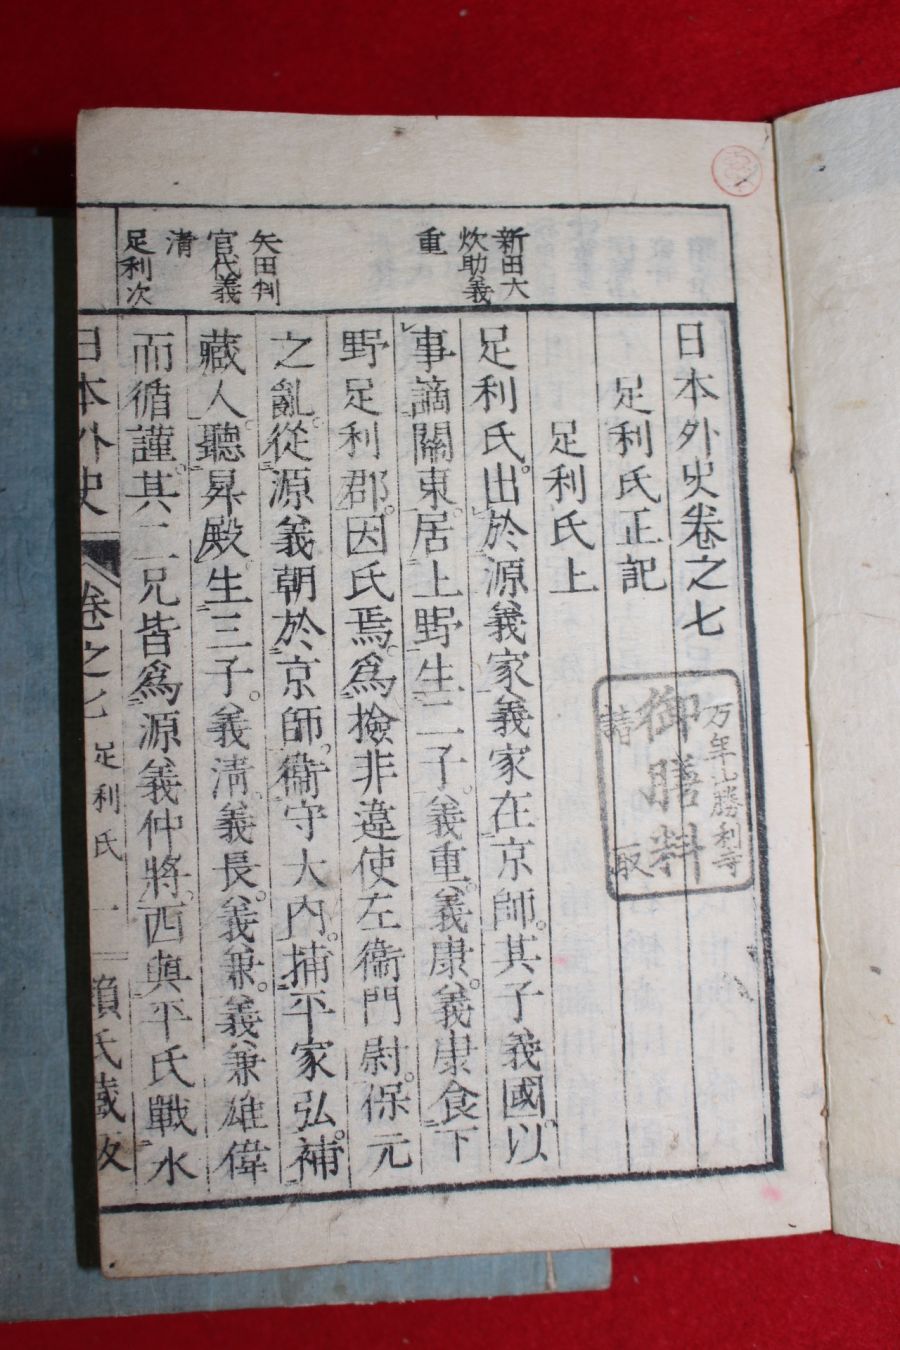 新田大
炊助義
重
矢田判
官代義
清
足利次
日本外史卷之七
足利氏正記
足利氏上
足利氏。出於源義家義家在京師。其子義國以
事謫關東。居上野生二子。義重。義康。義康食下
野足利郡。因氏焉。為檢非違使左衞門尉。保元
之亂。從源義朝於京師。衞守大內。捕平家弘。補
藏人。聽昇殿生三子。義清。義長。義兼。義兼雄偉
而循謹。其二兄皆為源義仲將。西與平氏戰水
日本外史 卷之七 足利氏 一 賴氏藏版
御膳料
万年山勝利寺